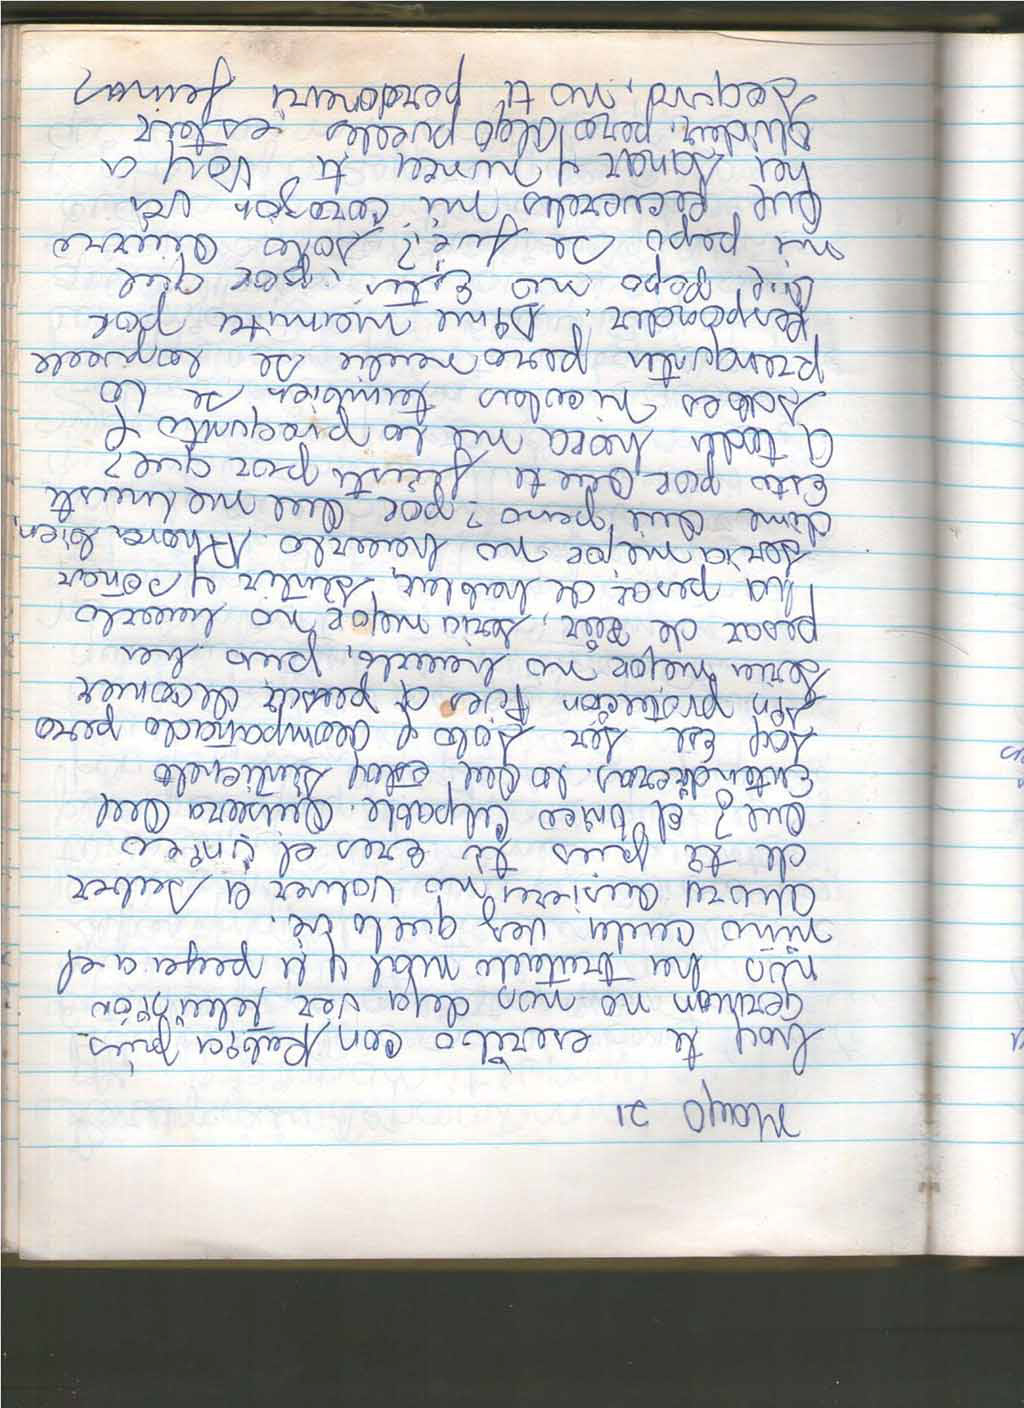 Mayo 21
Hoy te escribo con Rabia pués
German no nos deja ver televición
nén ha tratado mal y le pega a el
niño cada ves quelo ve.
ahora quisiera no volver a saber
de tí pues tu eres el único
Que? el único Culpable. Quisiera Que
Entendieras lo Que estoy sintiendo
Soy Ese ser solo y acompañado pero
sin protección Reies a pesar de comer
seria mejor no hacerlo, pues ha
pesar de Reír, seria mejor no hacerlo
ha pesar de hablar, sentir y soñar
seria mejor no hacerlo. Ahora bien,
dime Qué pena? por Que me
Esto por Que te fuiste por que?
A toda hora me lo pregunto y
sabes Nicolas tambien se lo
pregunta pero nadie se lo puede
Responder. Dime mamita por
Qué papa no Está, por que
mi papa se fué? solo Quiero
Que Recuerdes mi corazón va
ha sanar y nunca te voy a
olvidar, pero algo puedes estár
Seguro, no te perdonaré jamas